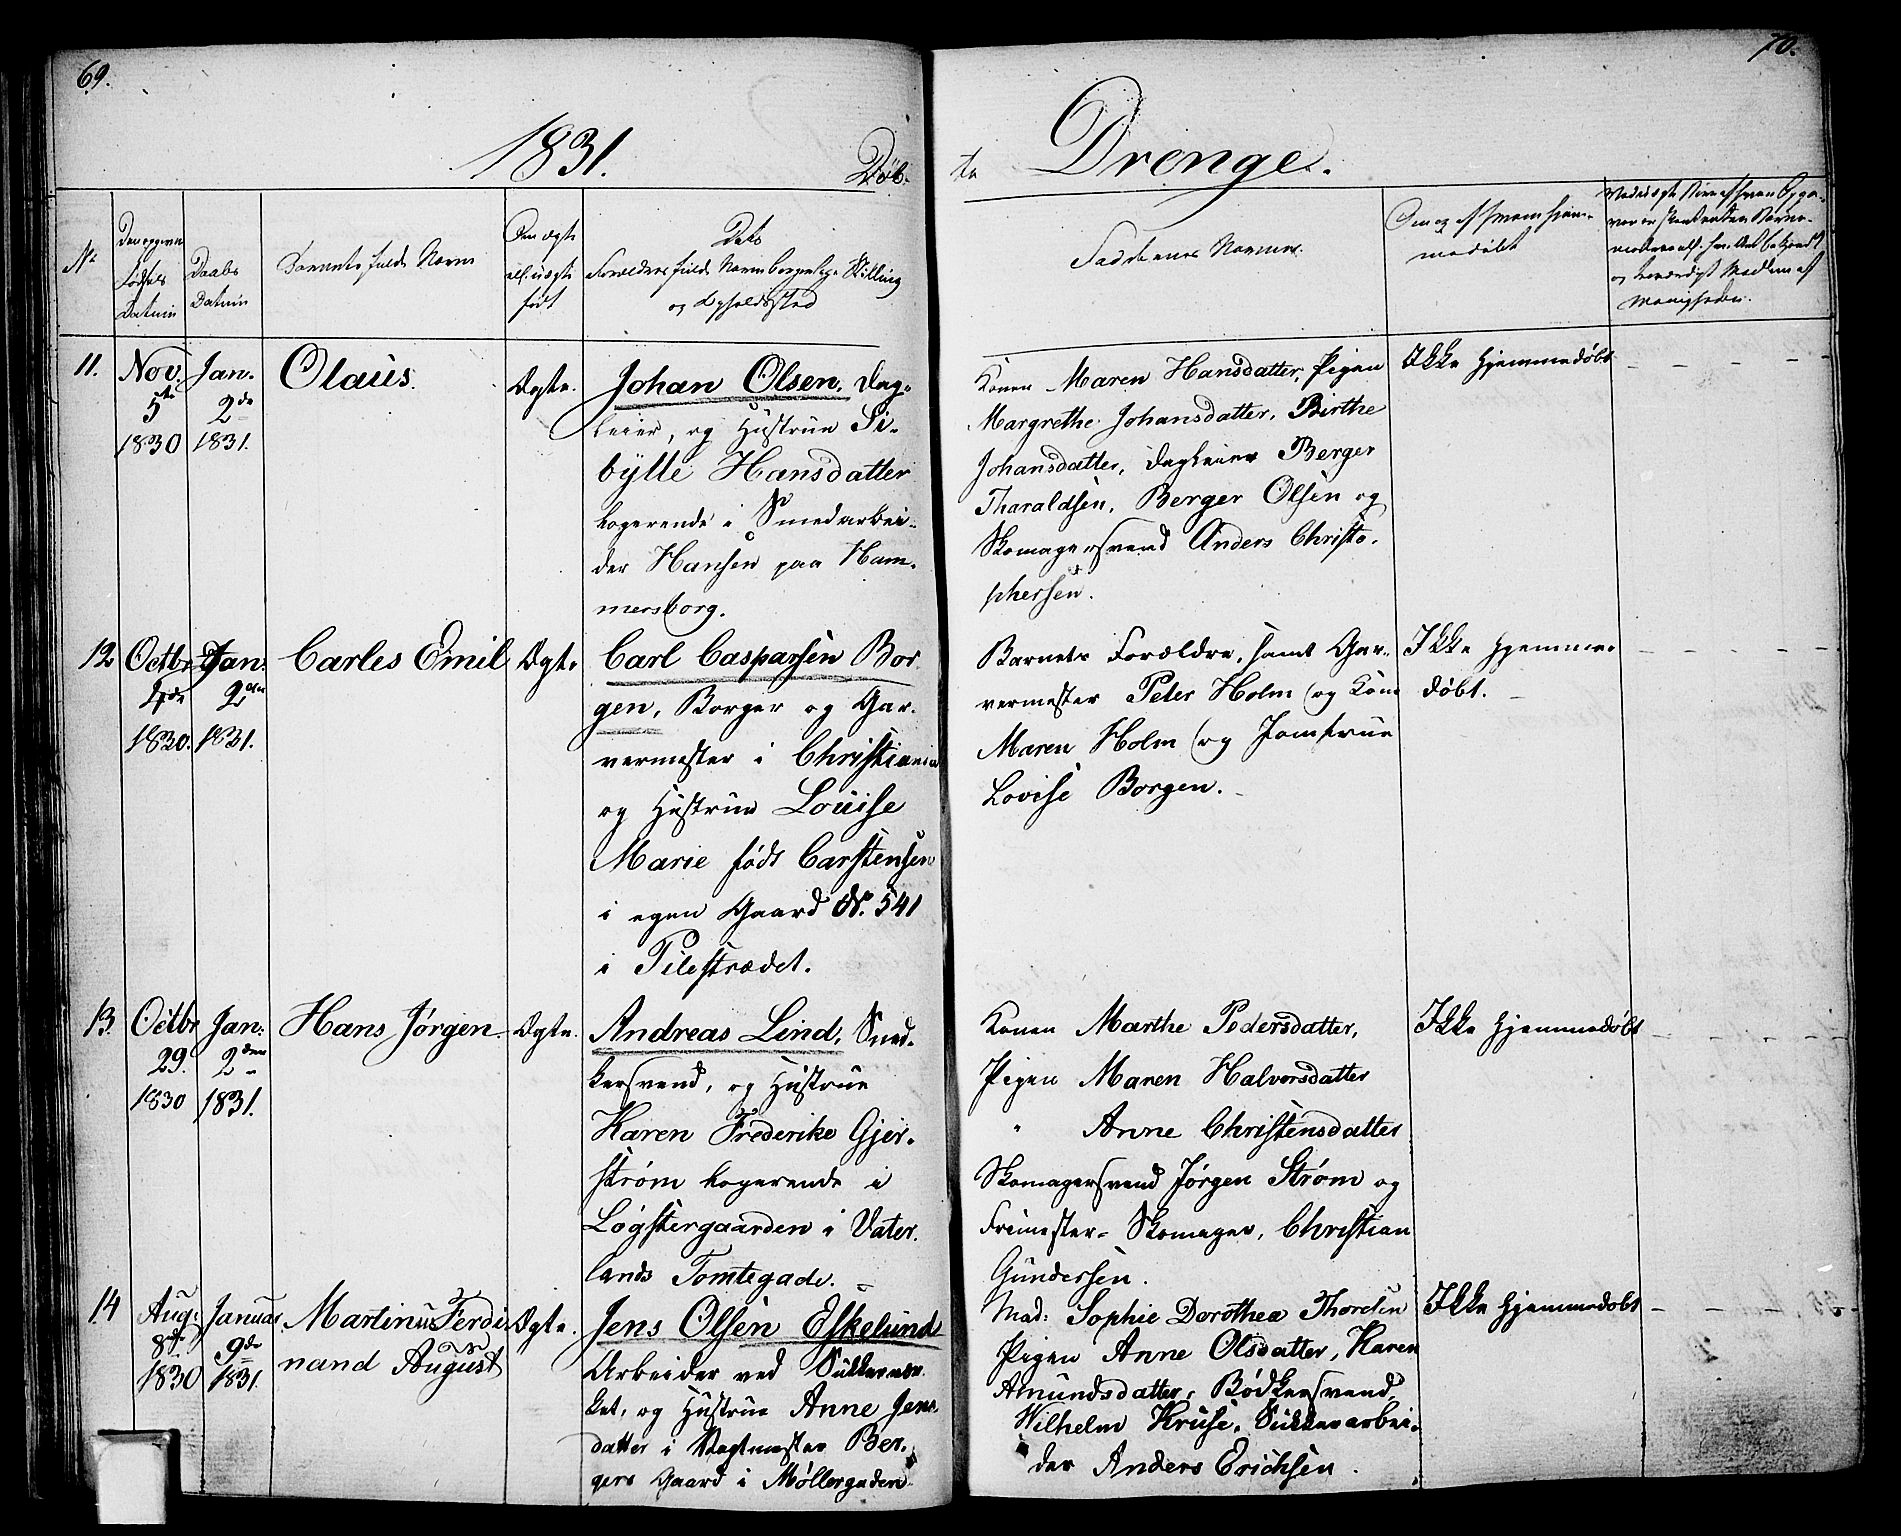 69.
70.
1831. Døb-
te Drenge.
No
Den opgivne
Fødsels
Datum
Daabs
Datum
Barnets fulde Navn
Om ægte
ell: uægte
født
Dets
Forældres fulde Navn borgerlige Stilling
og Opholdssted
Faddernes Navne.
Om og af hvem hjem-
medøbt
11.
Nov.
5te
1830
Jan.
2de
1831.
Olaus.
Ægte.
Johan Olsen, Dag-
leier, og Hustrue Si-
bylle Hansdatter
logerende i Smedarbei-
der Hansen paa Ham-
mersborg.
Konen Maren Hansdatter, Pigen
Margrethe Johansdatter, Birthe
Johansdatter, Dagleier Berger
Tharaldsen, Berger Olsen og
Skomagersvend Anders Christo-
phersen.
Ikke hjemmedøbt
12
Octbr
4de
1830.
Jan.
2den
1831.
Carles Emil
Ægte
Carl Casparsen Bor
gen, Borger og Gar-
vermester i Christiania
og Hustrue Louise
Marie født Carstensen
i egen Gaard N. 541
i Pilestrædet.
Barnets Forældre, samt Gar-
vermester Peter Holm og Kone
Maren Holm og Jomfrue
Lovise Borgen.
Ikke hjemme-
døbt.
13.
Octbr
29.
1830
Jan:
2den
1831.
Hans Jørgen
Ægte.
Andreas Lind, Sned-
kersvend, og Hustrue
Karen Frederike Gjer-
strøm logerende i
Løgstergaarden i Vater
lands Tomtegade.
Konen Marthe Pedersdatter,
Pigen Maren Halvorsdatter
" Anne Christensdatter
Skomagersvend Jørgen Strøm og
Frimester-Skomager, Christian
Gundersen.
Ikke hjemmedøbt
14
Aug:
8de
1830
Januar.
9de
1831.
Martinus Ferdi
nand August
Ægte.
Jens Olsen Eskelund
Arbeider ved Sukkerver-
ket, og Hustrue Anne Jens-
datter i Vagtmester Ber-
gers Gaard i Møllergaden
Mad: Sophie Dorothea Thoresen
Pigen Anne Olsdatter, Karen
Amundsdatter, Bødkersvend,
Wilhelm Kruse, Sukkerarbei-
der Anders Erichsen.
Ikke hjemmedøbt